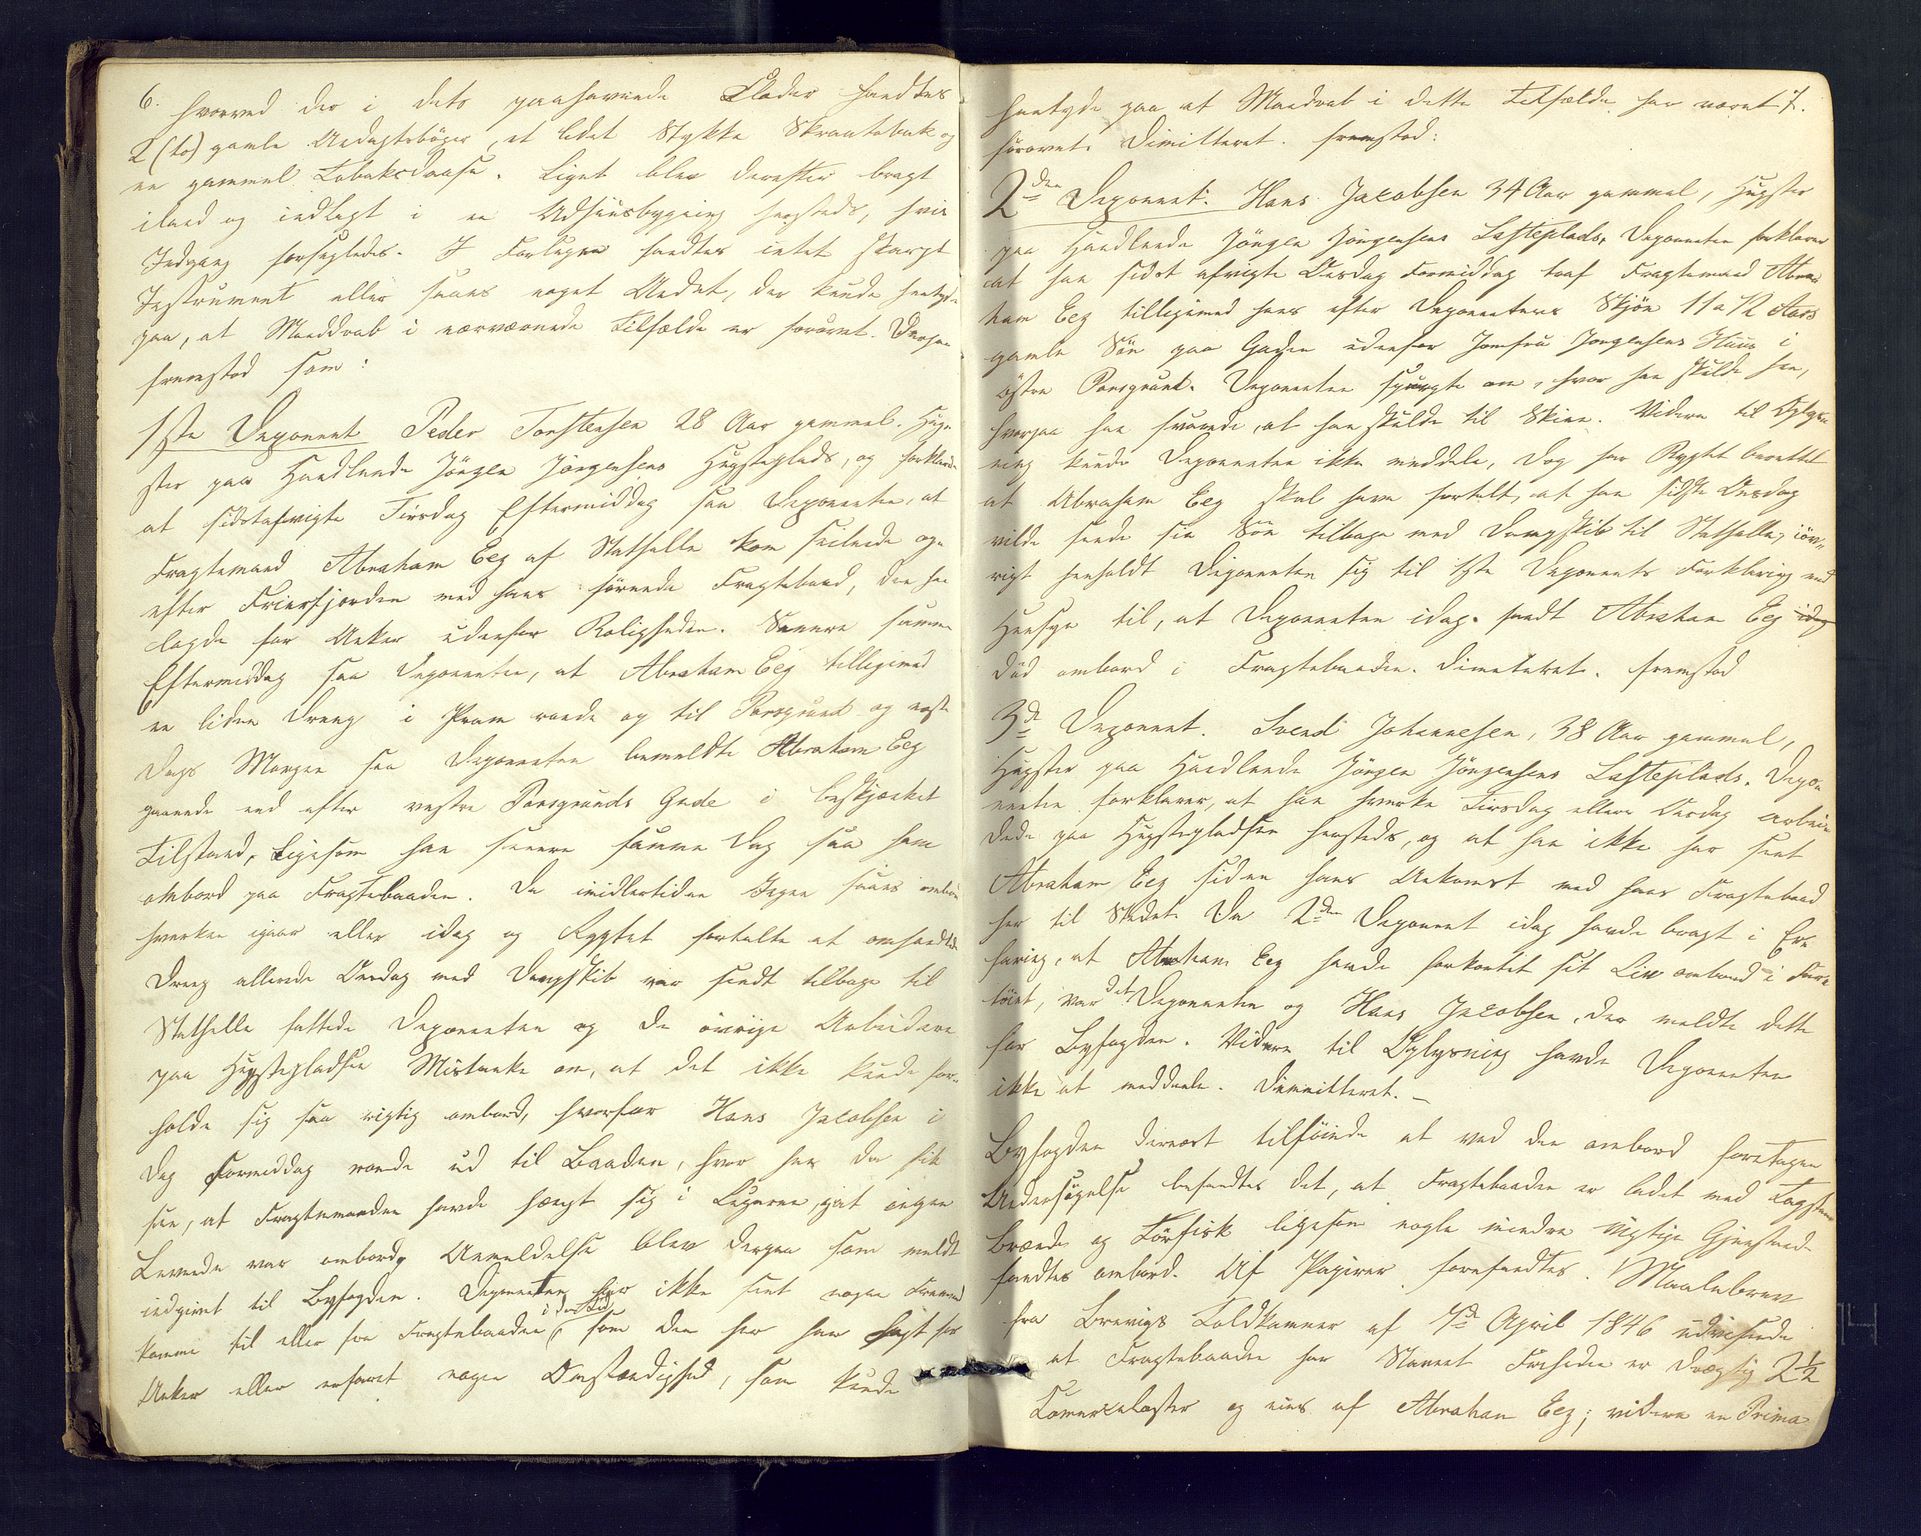 6.
hvorved der i dets paahavende Klæder fandtes
2 (to) gamle Andagtsbøger, et lidet Stykke Skraatobak og
en gammel Tobaksdaase. Liget blev derefter bragt
iland og indlagt i en Udhuusbygning hersteds, hvis
Indgang forsegledes. I Fartøyet fandtes intet skarpt
Instrument eller saaes noget Andet, der kunde hentyde
paa, at Manddrab i nærværende Tilfælde er forøvet. Derpaa
fremstod som:
1ste Deponent Peder Torstensen 28 Aar gammel. Hug-
ster paa Handlende Jörgen Jörgensens Hugsteplads, og forklarede
at sidstafvigte Tirsdag Eftermiddag saa Deponenten, at
Fragtemand Abraham Eeg af Stathelle kom seilende op-
efter Friersfjorden med hans förende Fragtebaad, den han
lagde for Anker udenfor Roligheden. Senere samme
Eftermiddag saa Deponenten, at Abraham Eeg tilligemed
en liden Dreng i Pram roede op til Porsgrund og næste
Dags Morgen saa Deponenten bemeldte Abraham Eeg
gaaende ned efter vestre Porsgrunds Gade i beskjænket
Tilstand, ligesom han senere samme Dag saa ham
ombord paa Fragtebaaden. Da imidlertiden Ingen saaes ombord
hverken igaar eller idag og Rygtet fortalte at omhandlede
Dreng allerede Onsdag med Dampskib var sendt tilbage til
Stathelle fattede Deponenten og de övrige Arbeidere
paa Hugstepladsen Mistanke om, at det ikke kunde for-
holde sig saa rigtig ombord, hvorfor Hans Jacobsen i
Dag Formiddag roede ud til Baaden, hvor han da fik
see, at Fragtemanden havde hængt sig i Lugaren, og at ingen
Levende var ombord. Anmeldelse blev derpaa som meldt
indgivet til Byfogden. Deponenten har ikke seet nogen Fremmed
komme til eller fra Fragtebaaden i den Tid, som den her har ligget for
Anker eller erfaret nogen Omstændighed, som kunde
hentyde paa at Manddrab i dette Tilfælde har været 7.
forövet. Dimitteret. fremstod:
2den Deponent. Hans Jacobsen 34 Aar gammel, Hugster
paa Handlende Jörgen Jörgensens Lasteplads. Deponenten forklarer
at han sidst afvigte Onsdag Formiddag traf Fragtemand Abra-
ham Eeg tilligemed hans efter Deponentens Skjön 11 a 12 Aars
gamle Sön paa Gaden udenfor Jomfru Jörgensens Huus i
östre Porsgrund. Deponenten spurgte om, hvor han skulde hen,
hvorpaa han svarede, at han skulde til Skien. Videre til Oplys-
ning kunde Deponenten ikke meddele, dog har Rygtet berettet
at Abraham Eeg skal have fortalt, at han sidste Onsdag
vilde sende sin Sön tilbage med Dampskib til Stathelle; iöv-
rigt henholdt Deponenten sig til 1ste Deponents Forklaring med
Hensyn til, at Deponenten idag fandt Abraham Eeg idag
död ombord i Fragtebaaden. Dimitteret. fremstod
3de Deponent. Svend Johannesen, 38 Aar gammel,
Hugster paa Handlende Jörgen Jörgensens Lasteplads. Depo-
nenten forklarer, at han hverken Tirsdag eller Onsdag arbei-
dede paa Hugstepladsen hersteds, og at han ikke har seet
Abraham Eeg siden hans Ankomst med hans Fragtebaad
her til Stedet. Da 2den Deponent idag havde bragt i Er-
faring, at Abraham Eeg havde forkortet sit Liv ombord i Far-
töiet, var det Deponenten og Hans Jacobsen, der meldte dette
for Byfogden. Videre til Oplysning havde Deponenten
ikke at meddele. Dimitteret. –
Byfogden dernæst tilföiede at ved den ombord foretagen
Undersögelse befandtes det, at Fragtebaaden er ladet med Tagsteen
Brænde og Törfisk ligesom nogle mindre vigtige Gjenstande
fandtes ombord. Af Papirer forefandtes. Maalebrev
fra Brevigs Toldkammer af 7de April 1846 udvisende
at Fragtebaaden har Navnet Friheden er drægtig 2½
Commercelæster og eies af Abraham Eeg; videre en Prima-